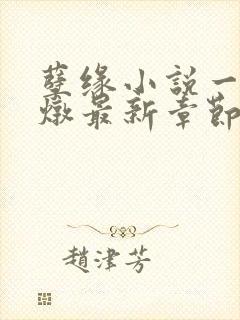 孽缘小說一
燉最新章節
趙津芳